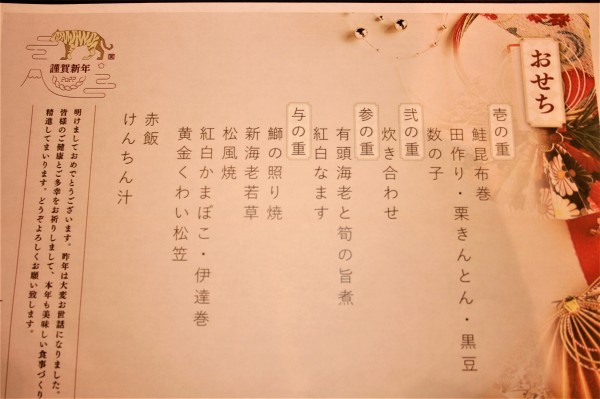 おせち
壱の重
鮭昆布巻
田作り・栗きんとん・黒豆
数の子
弐の重
炊き合わせ
参の重
有頭海老と筍の旨煮
紅白なます
与の重
鰤の照り焼
新海老若草
松風焼
紅白かまぼこ・伊達巻
黄金くわい松笠
赤飯
けんちん汁
謹賀新年
2022
明けましておめでとうございます。昨年は大変お世話になりました。
皆様のご健康とご多幸をお祈りしまして、本年も美味しい食事づくり
精進してまいります。どうぞよろしくお願い致します。